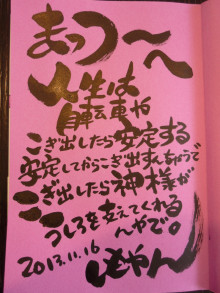 まっつ〜へ
人生は
自転車や
こぎ出したら安定する
安定してからこぎ出すんちゃうで
こぎ出したら神様が
うしろを支えてくれる
んやで。
2013.11.16